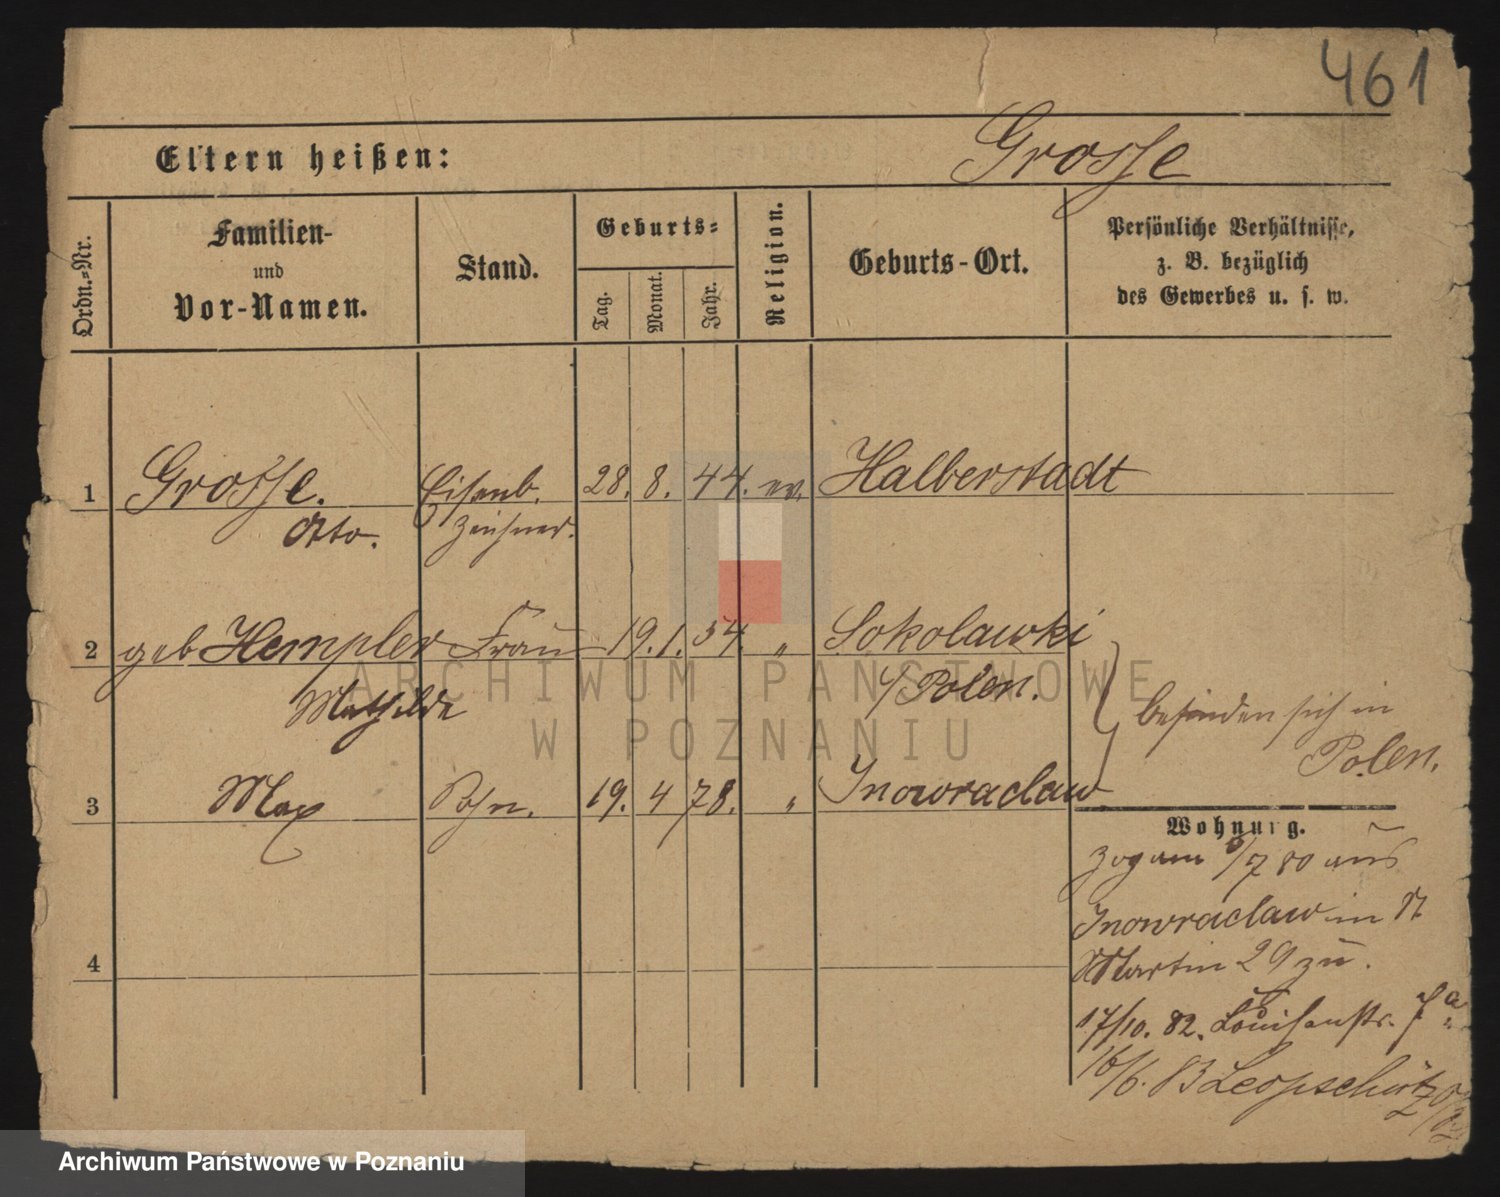 461
Eltern heißen:
Grosse
Ordn.-Nr.
Familien-
und
Vor-Namen.
Stand.
Geburts-
Tag.
Monat.
Jahr.
Religion.
Geburts-Ort.
Persönliche Verhältnisse,
z. B. bezüglich
des Gewerbes u. s. w.
1 Grosse. Eisenb. 28. 8. 44. ev. Halberstadt
Otto. Zeichner.
2 geb Hempler Frau 19. 1. 54. " Sokolawki
Mathilde i/Polen.
befinden sich in
Polen.
3 Max Sohn. 19. 4 78. " Inowraclaw
Wohnung.
zog am /7 80 aus
Inowraclaw in St
Martin 29 zu.
4
17/10. 82. Louisenstr.
16/6. 83 Leopschütz
ARCHIWUM PAŃSTWOWE
W POZNANIU
Archiwum Państwowe w Poznaniu